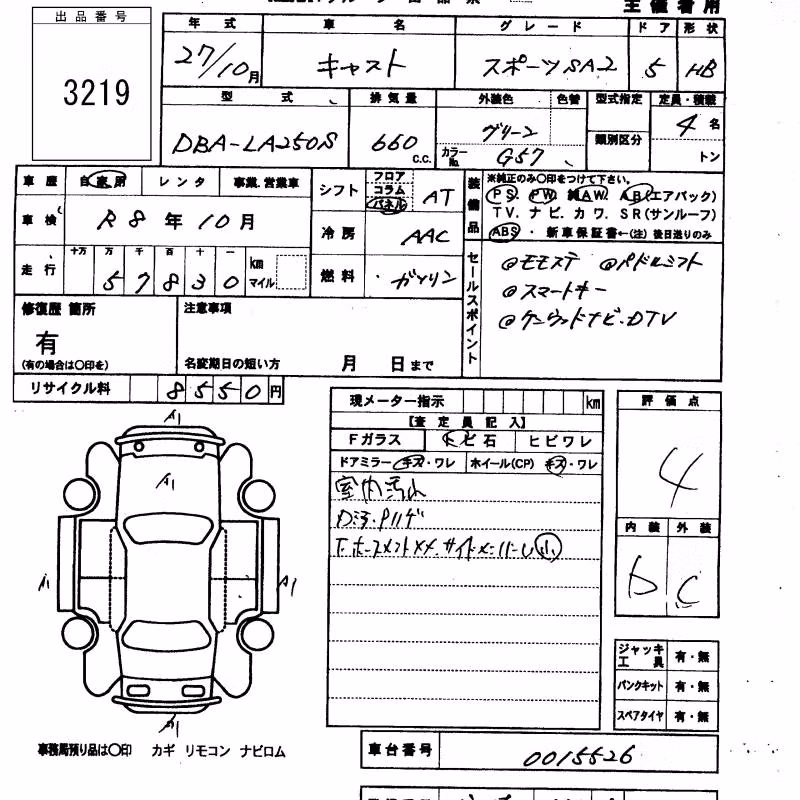 出品番号
3219
主催者用
年式 車名 グレード ドア 形状
27/10月 キャスト スポーツSA2 5 HB
型式 排気量 外装色 色替 型式指定 定員・積載
DBA-LA250S 660 c.c. グリーン 類別区分 4名
カラーNo. G57 トン
車歴 自家用 レンタ 事業.営業車
シフト フロア コラム パネル AT
車検 R8年10月
冷房 AAC
走行 十万 万 千 百 十 一
57830 km マイル
燃料 ガソリン
装備品
※純正のみ〇印をつけて下さい。
PS. PW. 純AW. AB(エアバック)
TV.ナビ.カワ.SR(サンルーフ)
ABS・新車保証書←(注)後日送りのみ
セールスポイント
◎モモステ ◎パドルシフト
◎スマートキー
◎ケンウッドナビ.DTV
修復歴 箇所
有
(有の場合は〇印を)
注意事項
名変期日の短い方 月 日まで
リサイクル料 8550円
現メーター指示 km
【査定員記入】
Fガラス トビ石 ヒビワレ
ドアミラー キズ・ワレ ホイール(CP) キズ・ワレ
室内汚れ
F.ホースメントXX.サイドメンバーU小
評価点
4
内装 外装
b C
ジャッキ工具 有・無
パンクキット 有・無
スペアタイヤ 有・無
A1
A1
A1
A1
A1
事務局預り品は〇印 カギ リモコン ナビロム
車台番号 0015526